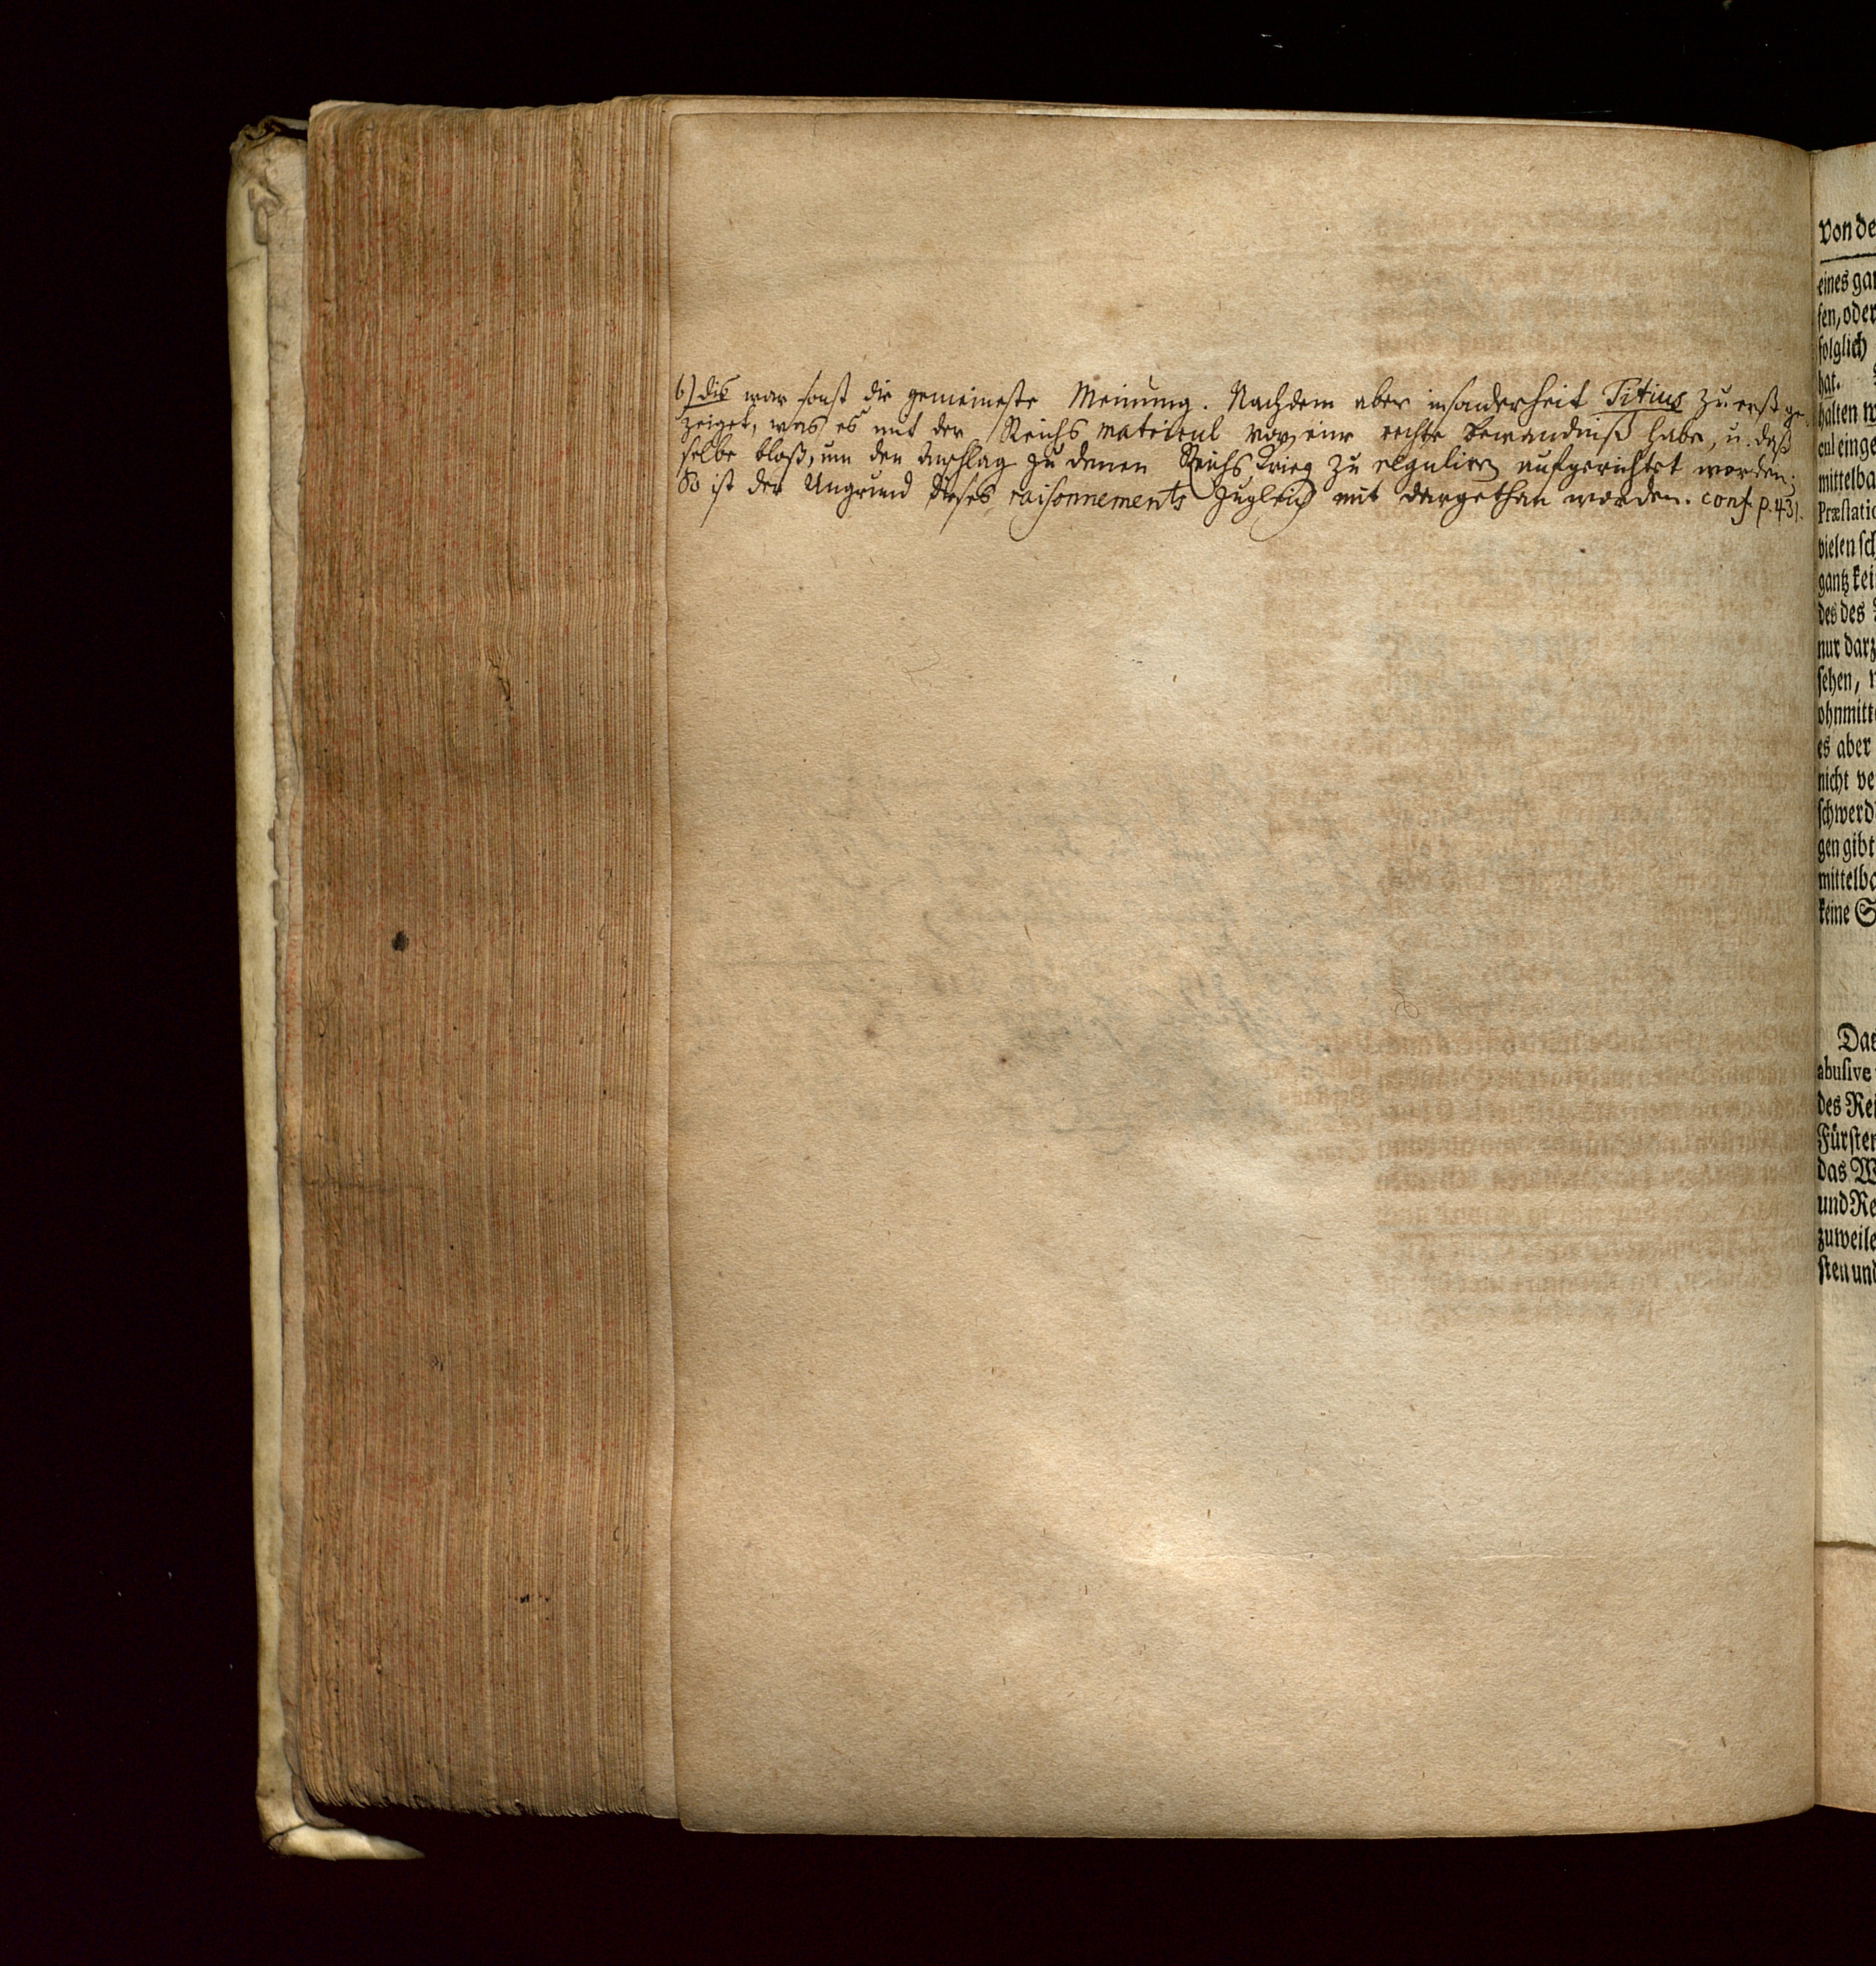 b) dis war sonst die gemeineste Meinung. Nachdem aber insonderheit Titius zu erst ge-
zeiget, was es mit der Reichs matricul vor eine rechte bewandniß habe, u. daß
selbe bloß, um den Anschlag zu denen Reichs Krieg zu reguliren aufgerichtet worden;
So ist der Ungrund dieses raisonnements zugleich mit dargethan worden. conf. p. 431.
Von de
eines gan
sen, oder
folglich
hat.
halten w
cul einge
mittelba
Præstatio
vielen sch
gantz kei
des des
nur darz
sehen, n
ohnmitt
es aber
nicht ve
schwerd
gen gibt
mittelba
keine S
Das
abusive
des Rei
Fürsten
das W
und Re
zuweile
sten und